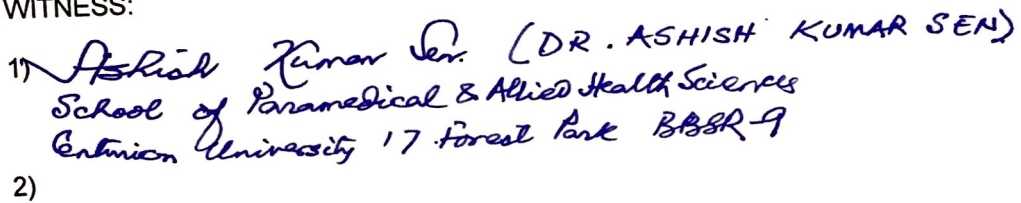 WITNESS:
1) Ashish Kumar Sen. (DR. ASHISH KUMAR SEN)
School of Paramedical & Allied Health Sciences
Centurion University 17 Forest Park BBSR-9
2)